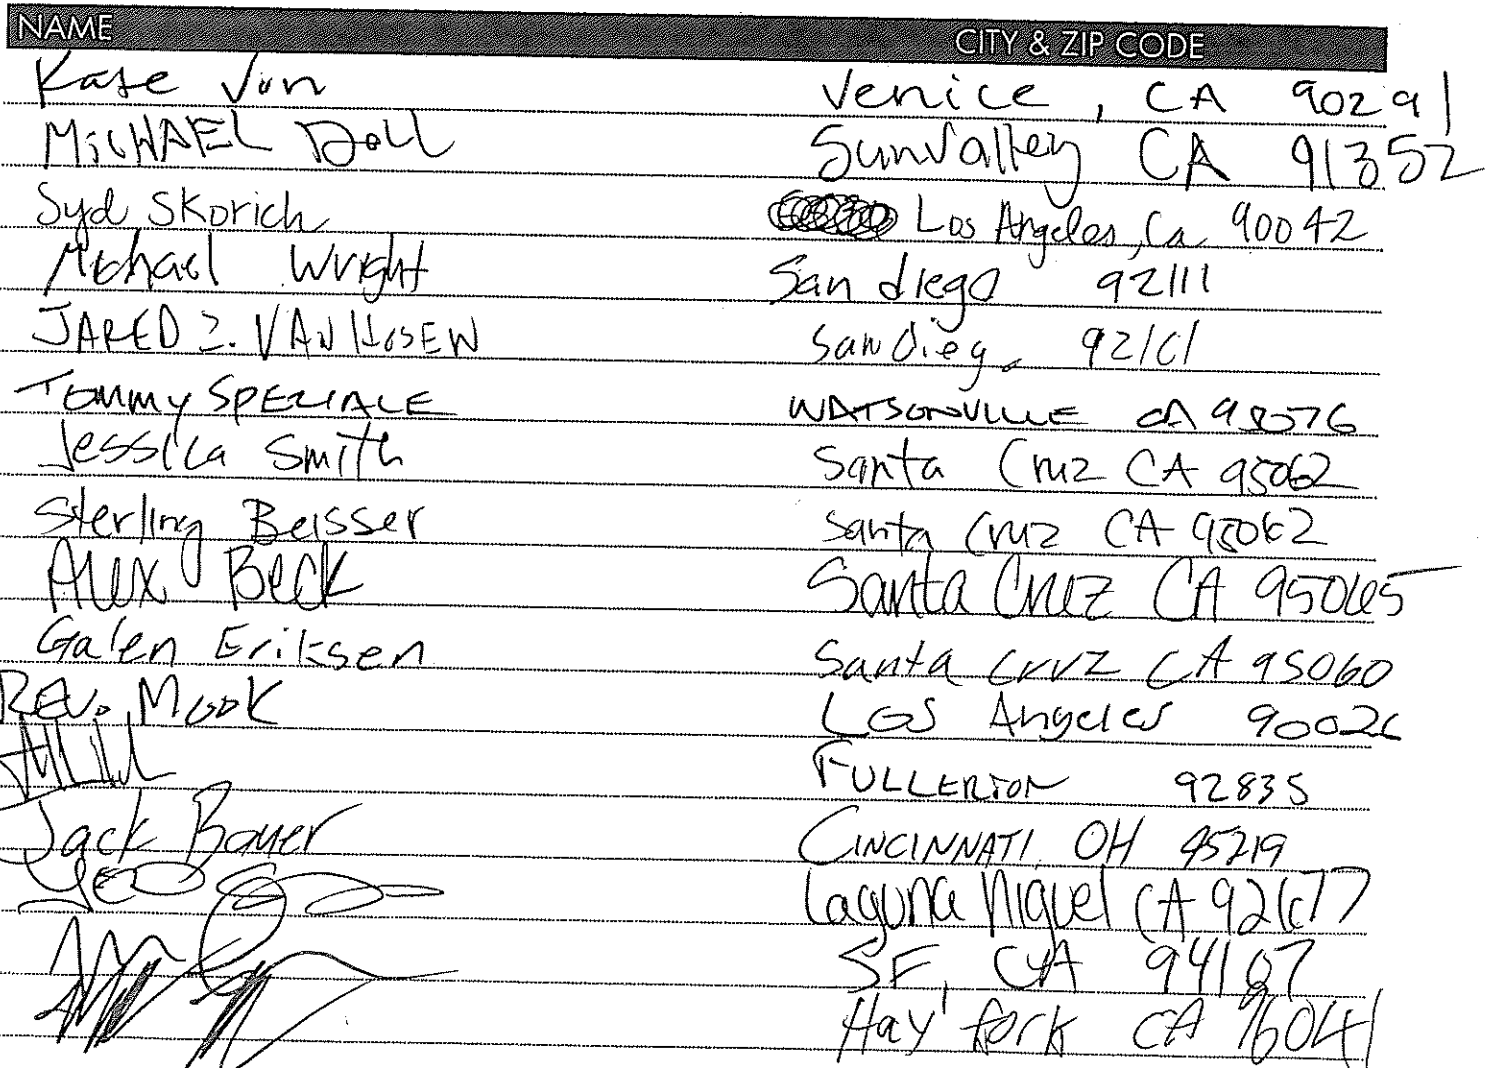 NAME CITY & ZIP CODE
Kate Jon Venice, CA 90291
MICHAEL DOLL Sunvalley CA 91352
Syd Skorich Los Angeles, Ca 90042
Michael Wright San diego 92111
JARED Z. VAN HOSEN San Diego 92101
Tommy SPEZIALE WATSONVILLE CA 95076
Jessica Smith Santa Cruz CA 95062
Sterling Beisser Santa Cruz CA 95062
Alex Beck Santa Cruz CA 95065
Galen Eriksen Santa Cruz CA 95060
REV. MOOK Los Angeles 90026
FULLERTON 92835
Jack Bauer CINCINNATI, OH 45219
Laguna Niguel CA 92677
SF, CA 94107
Hay fork CA 96041